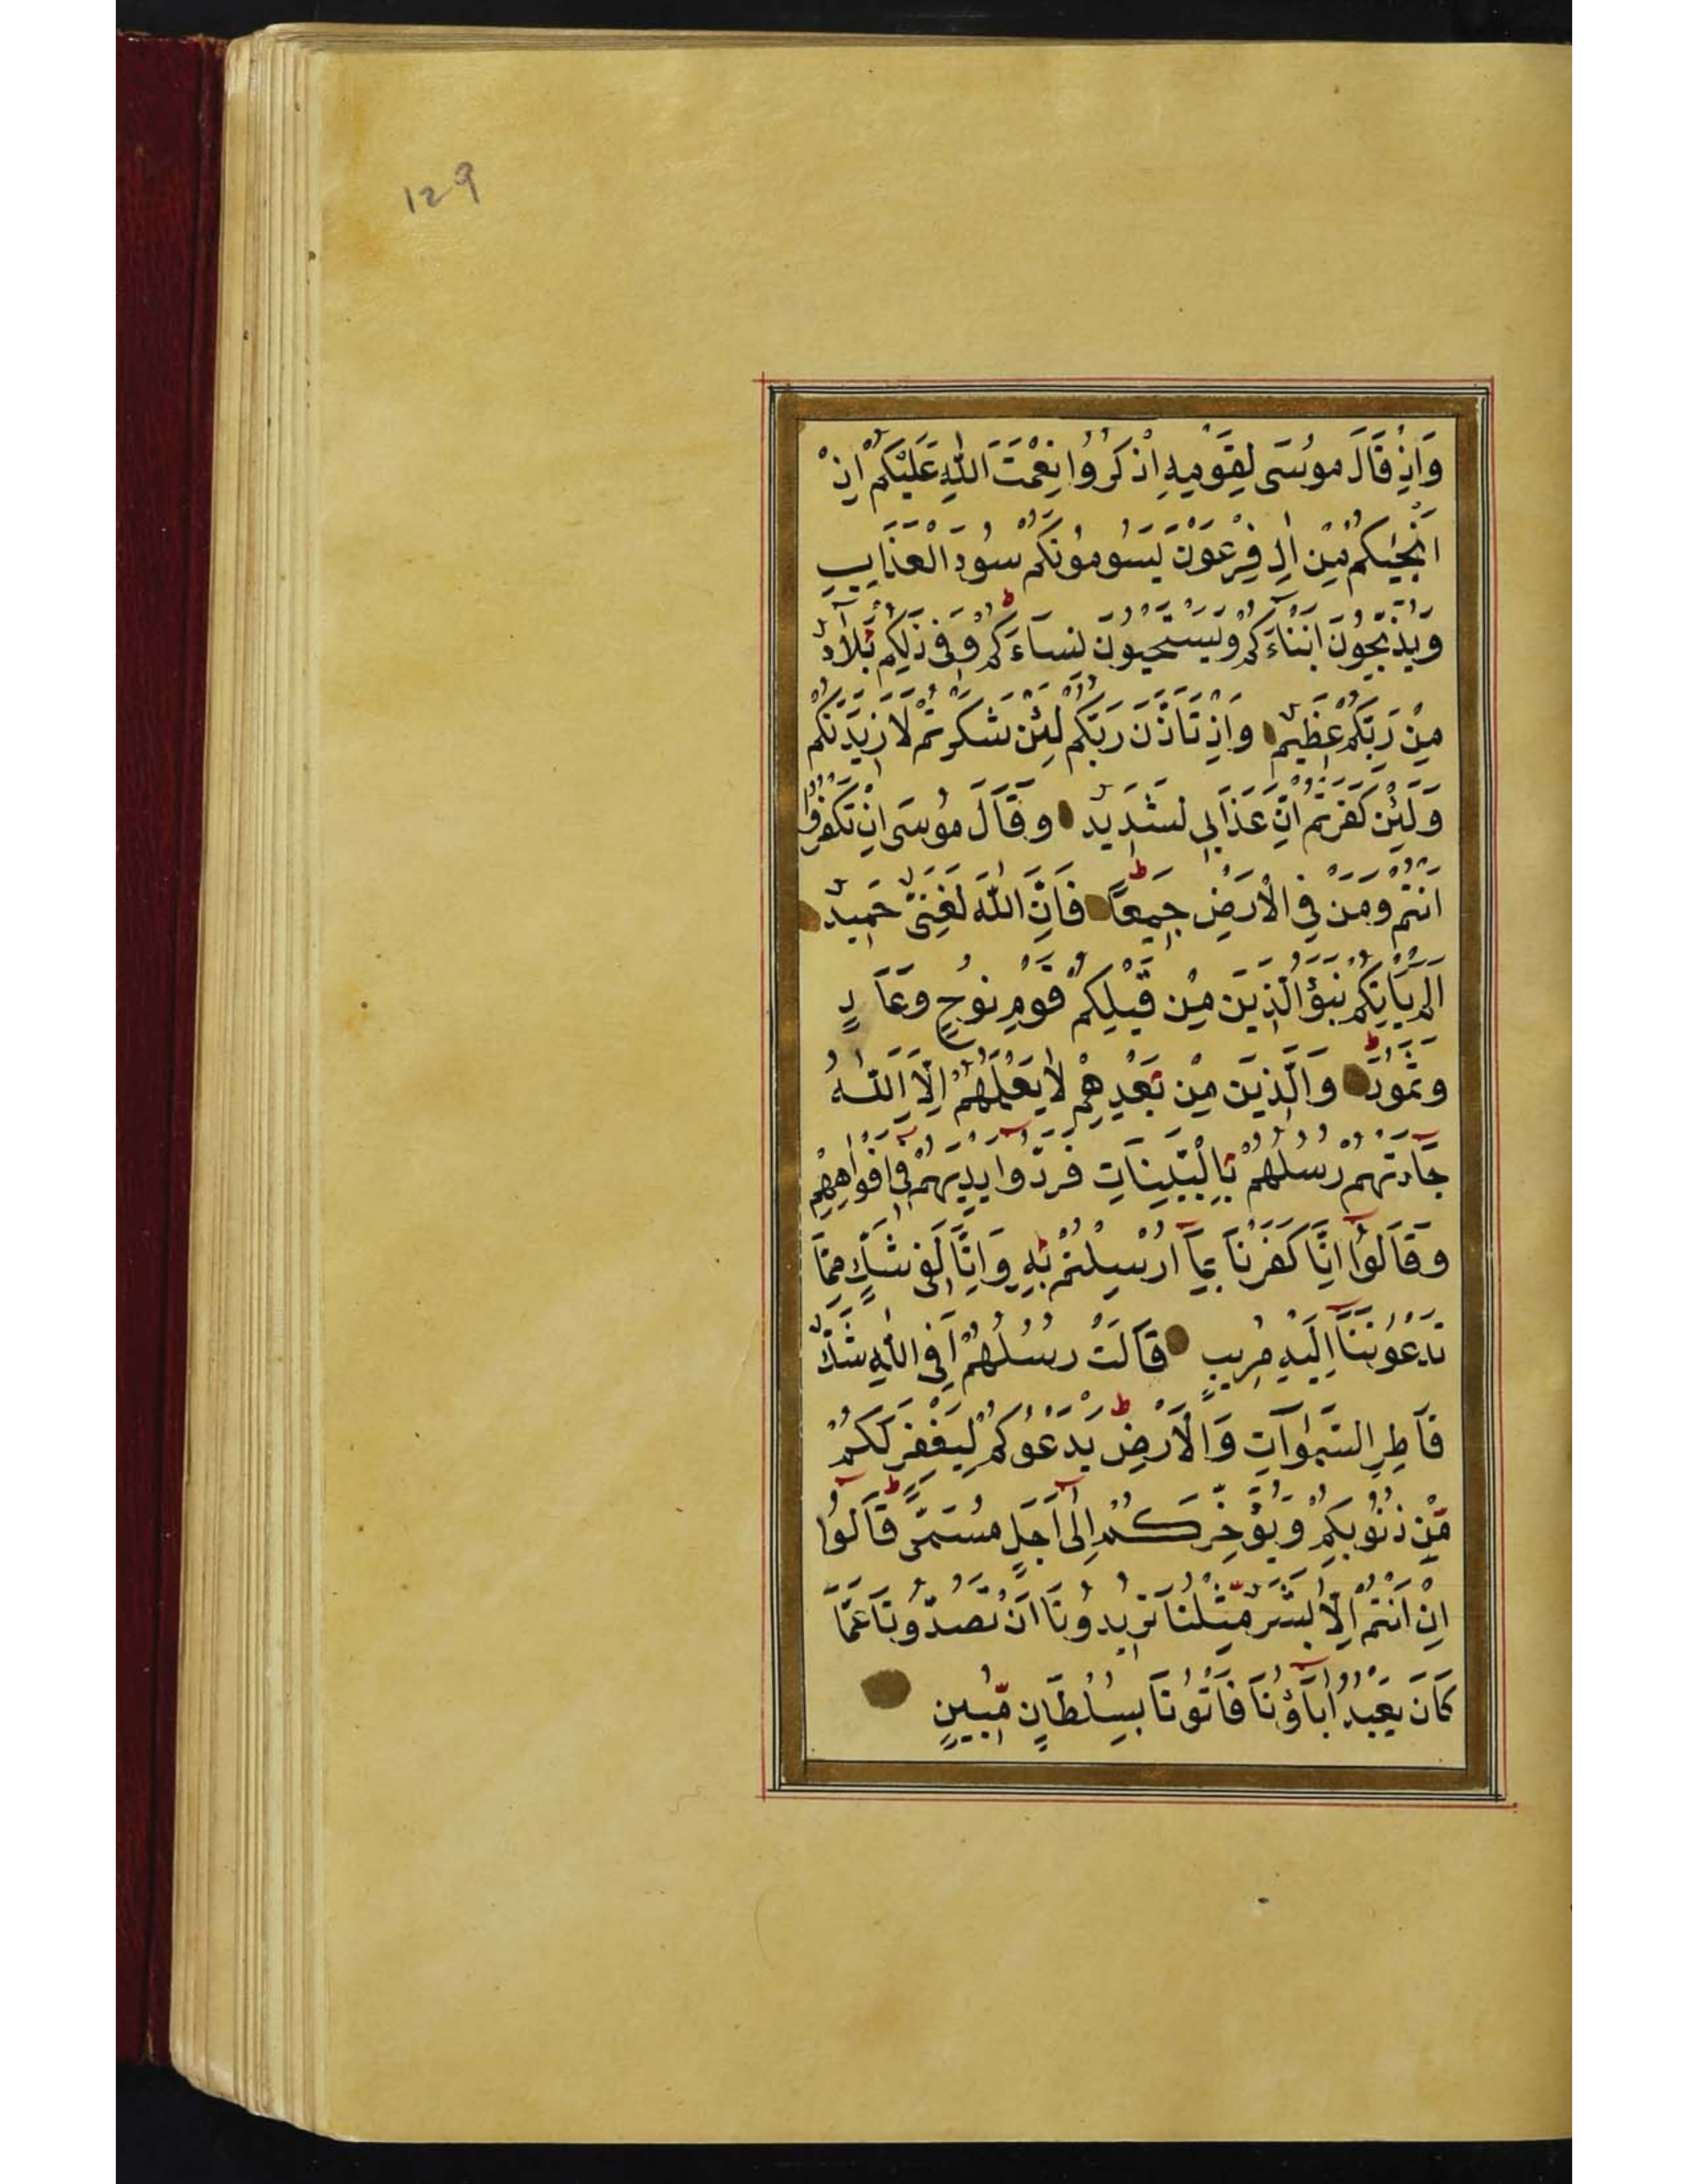 129
وَاِذْ قَالَ مُوسَى لِقَوْمِهِ اِذْكُرُوا نِعْمَتَ اللّٰهِ عَلَيْكُمْ اِذْ
اَنْجٰيكُمْ مِنْ اٰلِ فِرْعَوْنَ يَسُومُونَكُمْ سُوءَ الْعَذَابِ
وَيُذَبِّحُونَ اَبْنَاءَكُمْ وَيَسْتَحْيُونَ نِسَاءَكُمْ وَفِى ذٰلِكُمْ بَلَاءٌ
مِنْ رَبِّكُمْ عَظِيمٌ وَاِذْ تَاَذَّنَ رَبُّكُمْ لَئِنْ شَكَرْتُمْ لَاَزِيدَنَّكُمْ
وَلَئِنْ كَفَرْتُمْ اِنَّ عَذَابِى لَشَدِيدٌ وَقَالَ مُوسَى اِنْ تَكْفُرُوا
اَنْتُمْ وَمَنْ فِى الْاَرْضِ جَمِيعًا فَاِنَّ اللّٰهَ لَغَنِىٌّ حَمِيدٌ
اَلَمْ يَاْتِكُمْ نَبَؤُ الَّذِينَ مِنْ قَبْلِكُمْ قَوْمِ نُوحٍ وَعَادٍ
وَثَمُودَ وَالَّذِينَ مِنْ بَعْدِهِمْ لَا يَعْلَمُهُمْ اِلَّا اللّٰهُ
جَاءَتْهُمْ رُسُلُهُمْ بِالْبَيِّنَاتِ فَرَدُّوا اَيْدِيَهُمْ فِى اَفْوَاهِهِمْ
وَقَالُوا اِنَّا كَفَرْنَا بِمَا اُرْسِلْتُمْ بِهِ وَاِنَّا لَفِى شَكٍّ مِمَّا
تَدْعُونَنَا اِلَيْهِ مُرِيبٍ قَالَتْ رُسُلُهُمْ اَفِى اللّٰهِ شَكٌّ
فَاطِرِ السَّمٰوَاتِ وَالْاَرْضِ يَدْعُوكُمْ لِيَغْفِرَ لَكُمْ
مِّنْ ذُنُوبِكُمْ وَيُؤَخِّرَكُمْ اِلٰى اَجَلٍ مُسَمًّى قَالُوا
اِنْ اَنْتُمْ اِلَّا بَشَرٌ مِّثْلُنَا تُرِيدُونَ اَنْ تَصُدُّونَا عَمَّا
كَانَ يَعْبُدُ اٰبَاؤُنَا فَاْتُونَا بِسُلْطَانٍ مُّبِينٍ